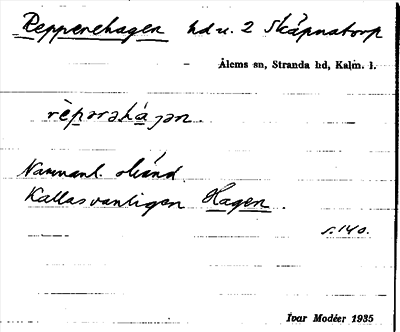 Reppenehagen hd u. 2 Skäpnatorp
Ålems sn, Stranda hd, Kalm. l.
rèparəhá̱gən.
Namnanl. okänd
Kallas vanligen Hagen.
s. 140.
Ivar Modéer 1935